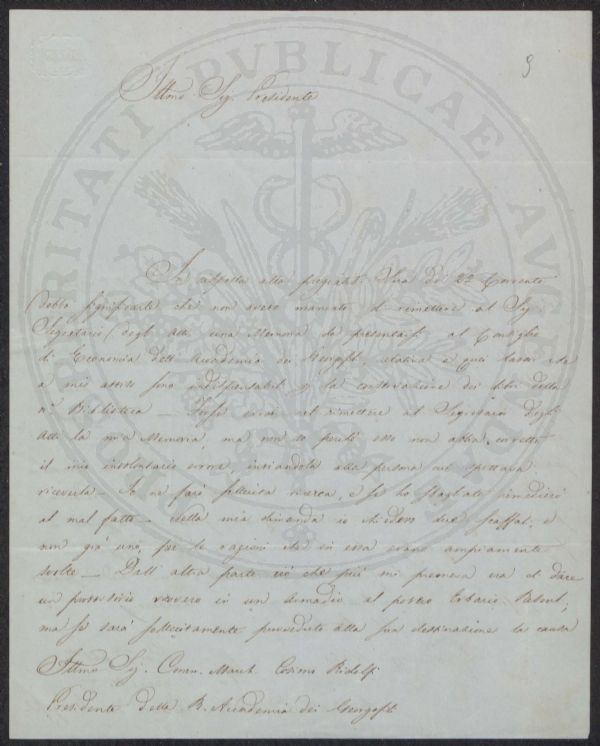 9
Illmo Sig. Presidente
In risposta alla pregiat. Sua de' 27 Corrente
debbo significarle che non avevo mancato di rimettere al Sig.
Segretario degli Atti una Memoria da presentarsi al Consiglio
di Economia dell'Accademia dei Georgofi. relativa a quei lavori che
a mio avviso sono indispensabili p. la conservazione dei libri della
n.a Biblioteca — errai nel rimettere al Segretario degli
Atti la mia Memoria, ma non so perchè esso non abbia corretto
il mio involontario errore, inviandola alla persona cui spettava
riceverla — Io ne farò sollecita ricerca, e se ho sbagliato rimedierò
al mal fatto — Nella mia dimanda io chiedeva due scaffali, e
non già uno, per le ragioni che in essa erano ampiamente
svolte — Dall'altra parte ciò che più mi premeva era di dare
un provvisorio ricovero in un armadio al povero Erbario
ma se sarà sollecitamente provveduto alla sua destinazione la causa
Illmo Sig. Comm. March. Cosimo Ridolfi
Presidente della R. Accademia dei Georgofi.
PVBLICAE